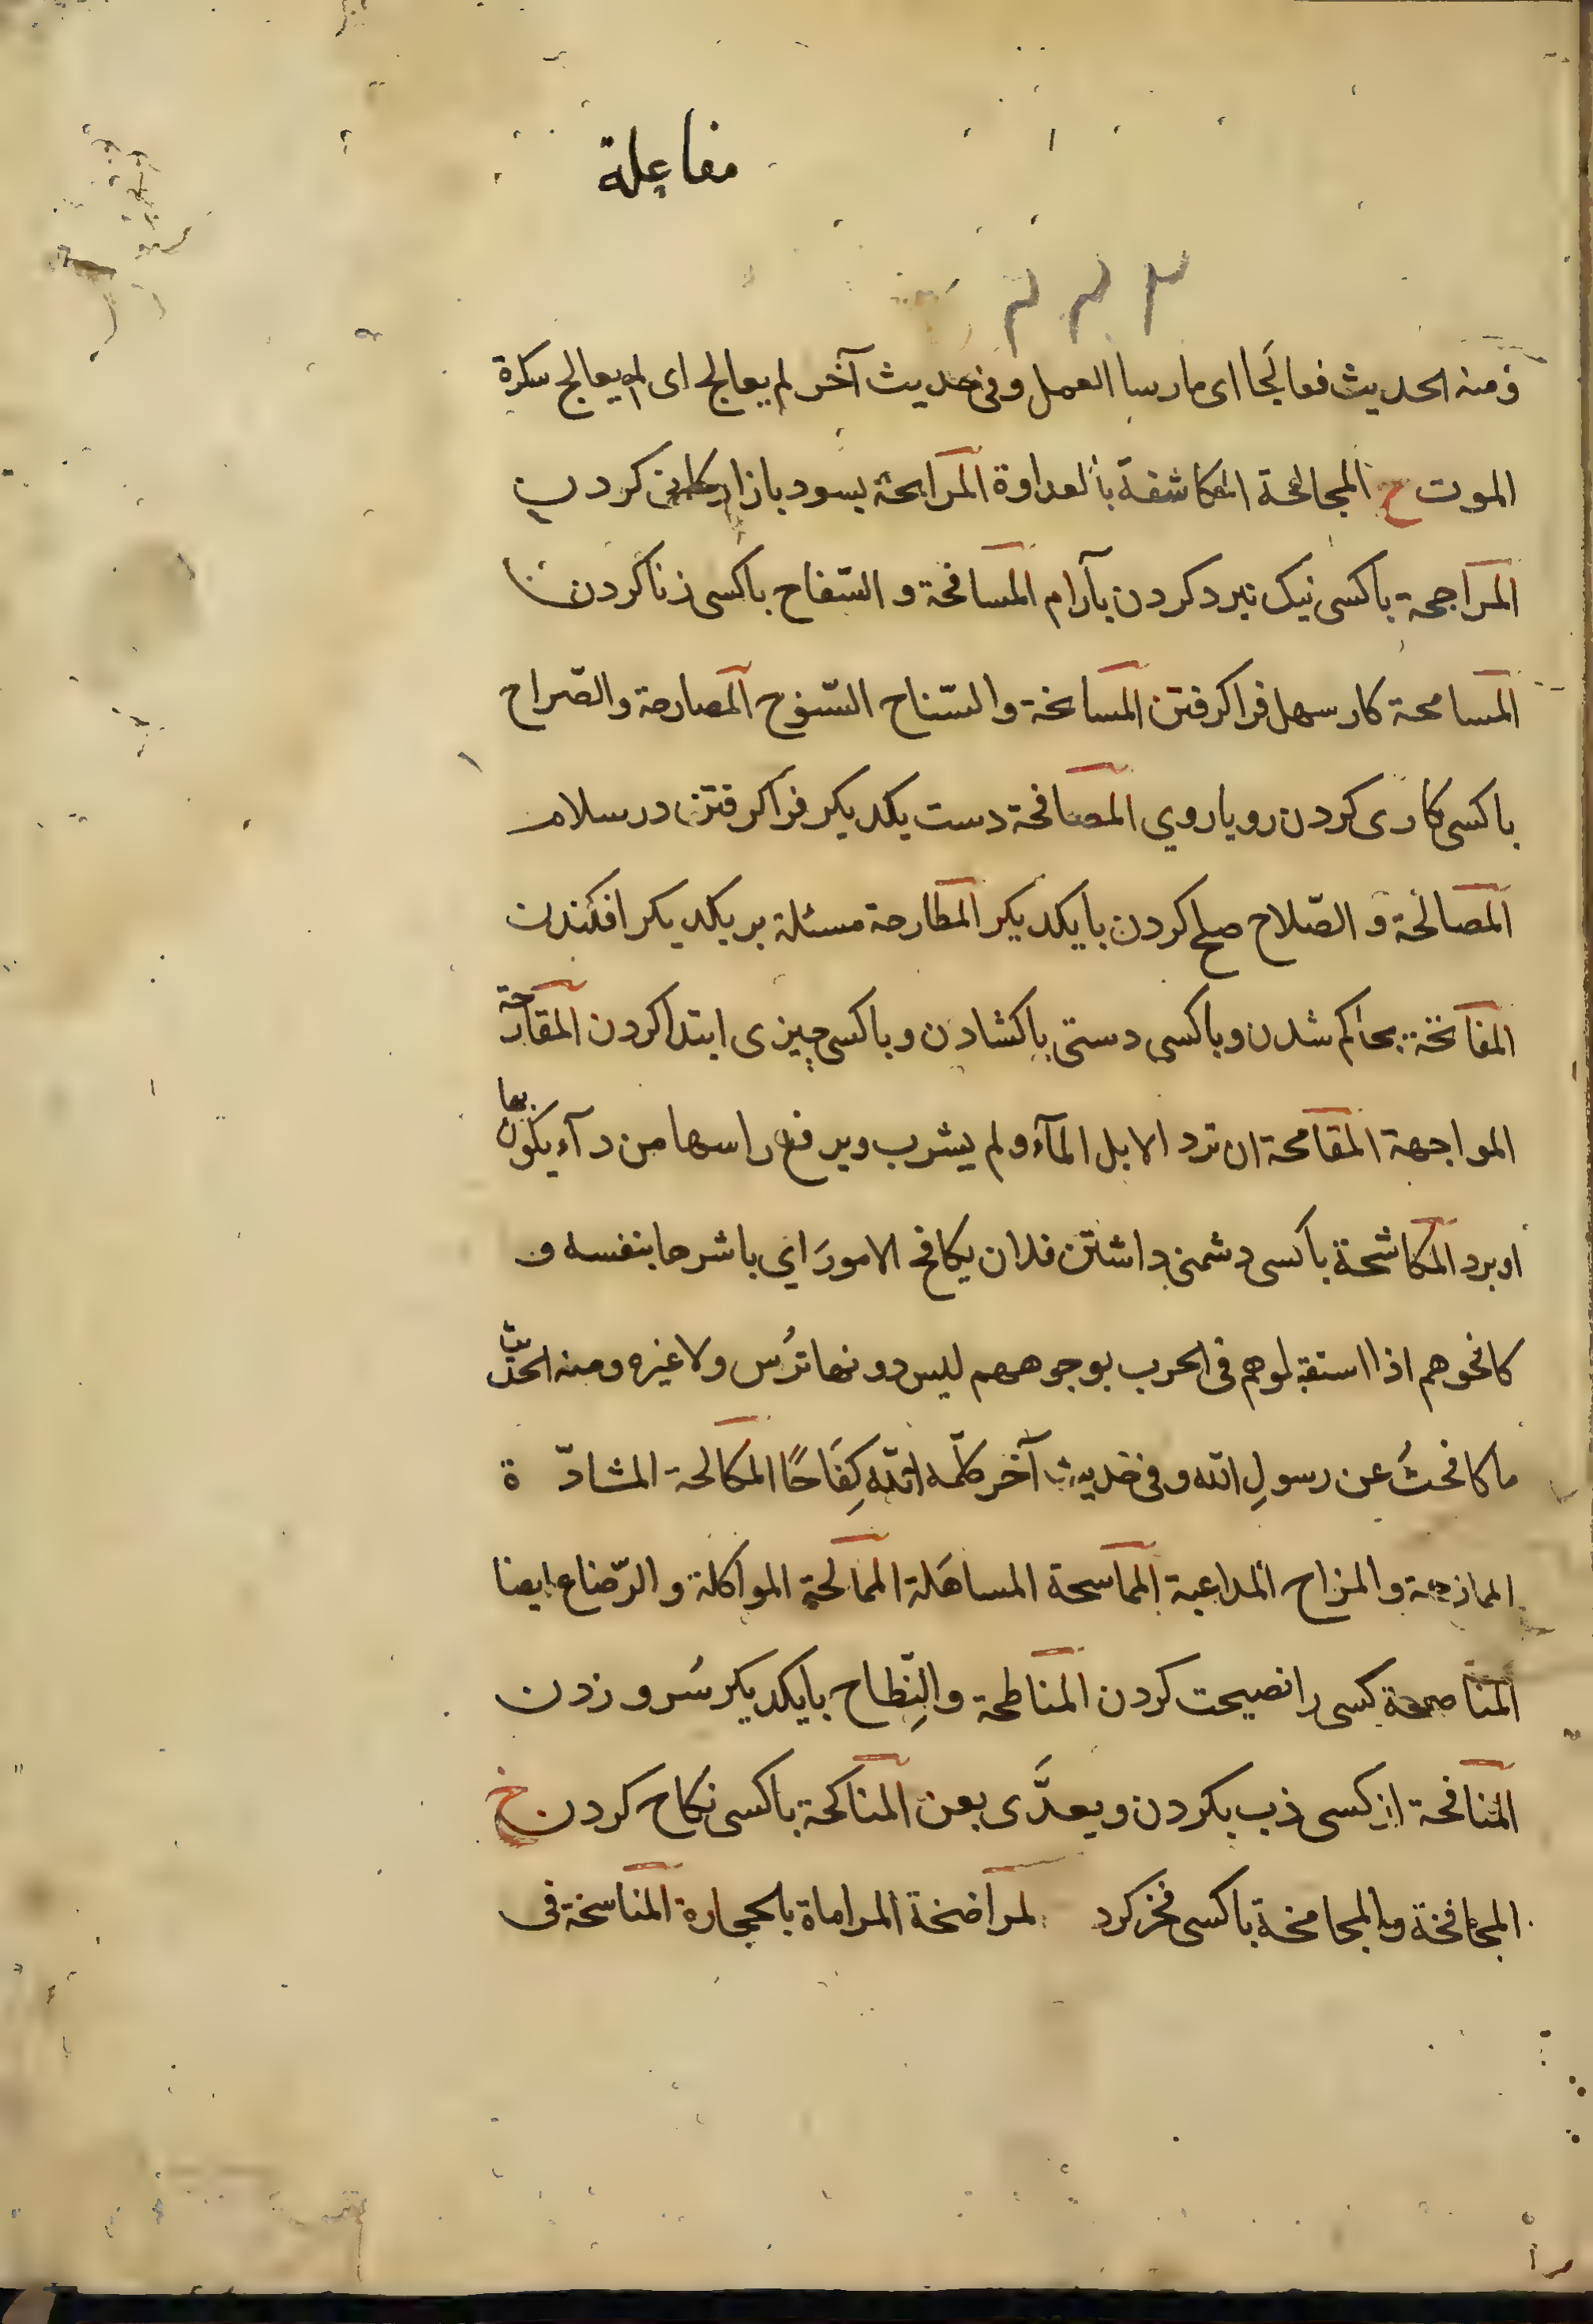 مفاعلة
٣ ٣ ٣
ومنه الحديث فعالَجا ای مارسا العمل وفی حدیث آخر لم یعالج ای لم یعالج سکرة
الموت ح المجالحة المکاشفة بالعداوة المرابحة بسود بازارکانی کردن
المراجحة باکسی نیک نبرد کردن بآرام المسافحة و السّفاح باکسی زنا کردن
المسامحة کار سهل فراکرفتن المسانحة والسّناح السّنوح المصارحة والصّراح
باکسی کاری کردن رویاروي المصافحة دست یکدیکر فراکرفتن در سلام
المصالحة و الصّلاح صلح کردن بایکدیکر المطارحة مسئلة بر یکدیکر افکندن
المفاتحة بحاکم شدن وباکسی دستی باکشادن وباکسی چیزی ابتدا کردن المقارحة
المواجهة المقامحة ان ترد الابل المآء ولم یشرب ویرفع راسها من دآء یکون بها
او برد المکاشحة باکسی دشمنی داشتن فلان یکافح الامورَ اي باشرها بنفسه و
کافحوهم اذا استقبلوهم فی الحرب بوجوههم لیس دونها ترُس ولا غیره ومنه الحدیث
ما کافحتُ عن رسولِ الله وفی حدیث آخر کلّمه اللّه کِفَاحًا المکالحة المشادّة
الممازحة والمزاح المداعبة المماسحة المساهَلة الممالحة المواکلة والرّضاع ایضا
المناصحة کسی را نصیحت کردن المناطحة والنِّطاح بایکدیکر سُرو زدن
المنافحة از کسی ذب بکردن ویعدَّی بعن المناکحة باکسی نکاح کردن خ
المجافخة والمجامخة باکسی فخر کرد لمراضخة المراماة بالحجارة المناسخة فی